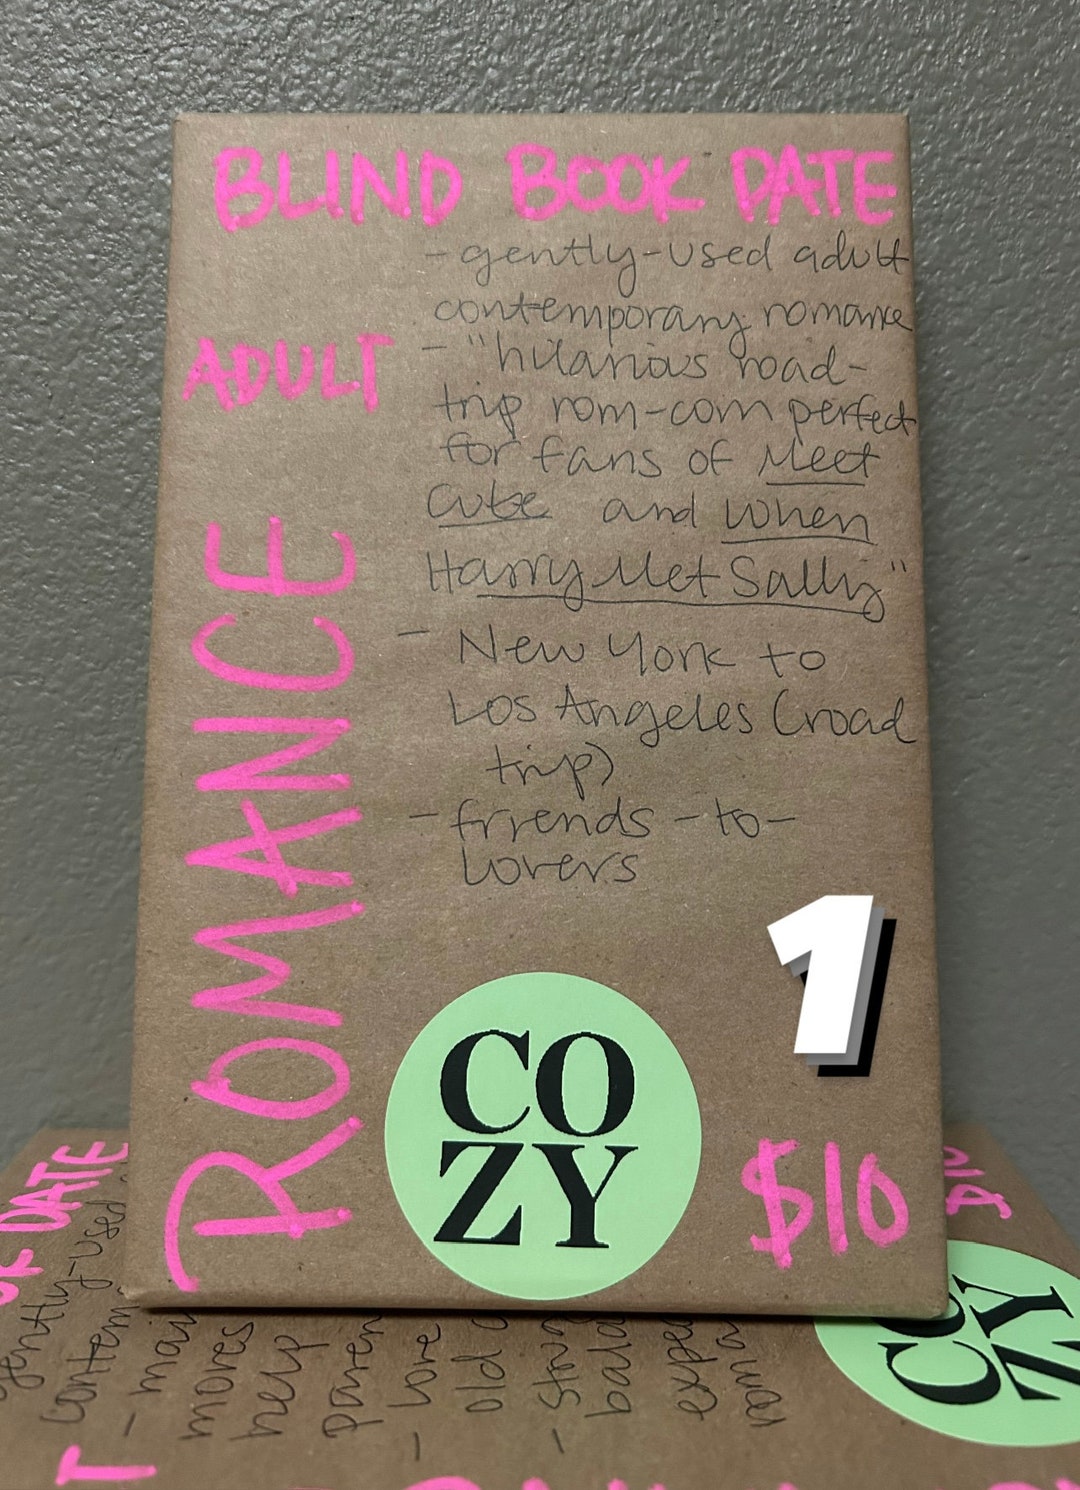 BLIND BOOK DATE
- gently-used adult
contemporary romance
- "hilarious road-
trip rom-com perfect
for fans of Meet
Cute and When
Harry Met Sally"
- New York to
Los Angeles (road
trip)
- friends-to-
lovers
ADULT
ROMANCE
1
COZY
$10
DATE
gently-used
contem
- mai
moves
help
paren
- love
old
- stru
bala
expe
roma
T
$10
COZY